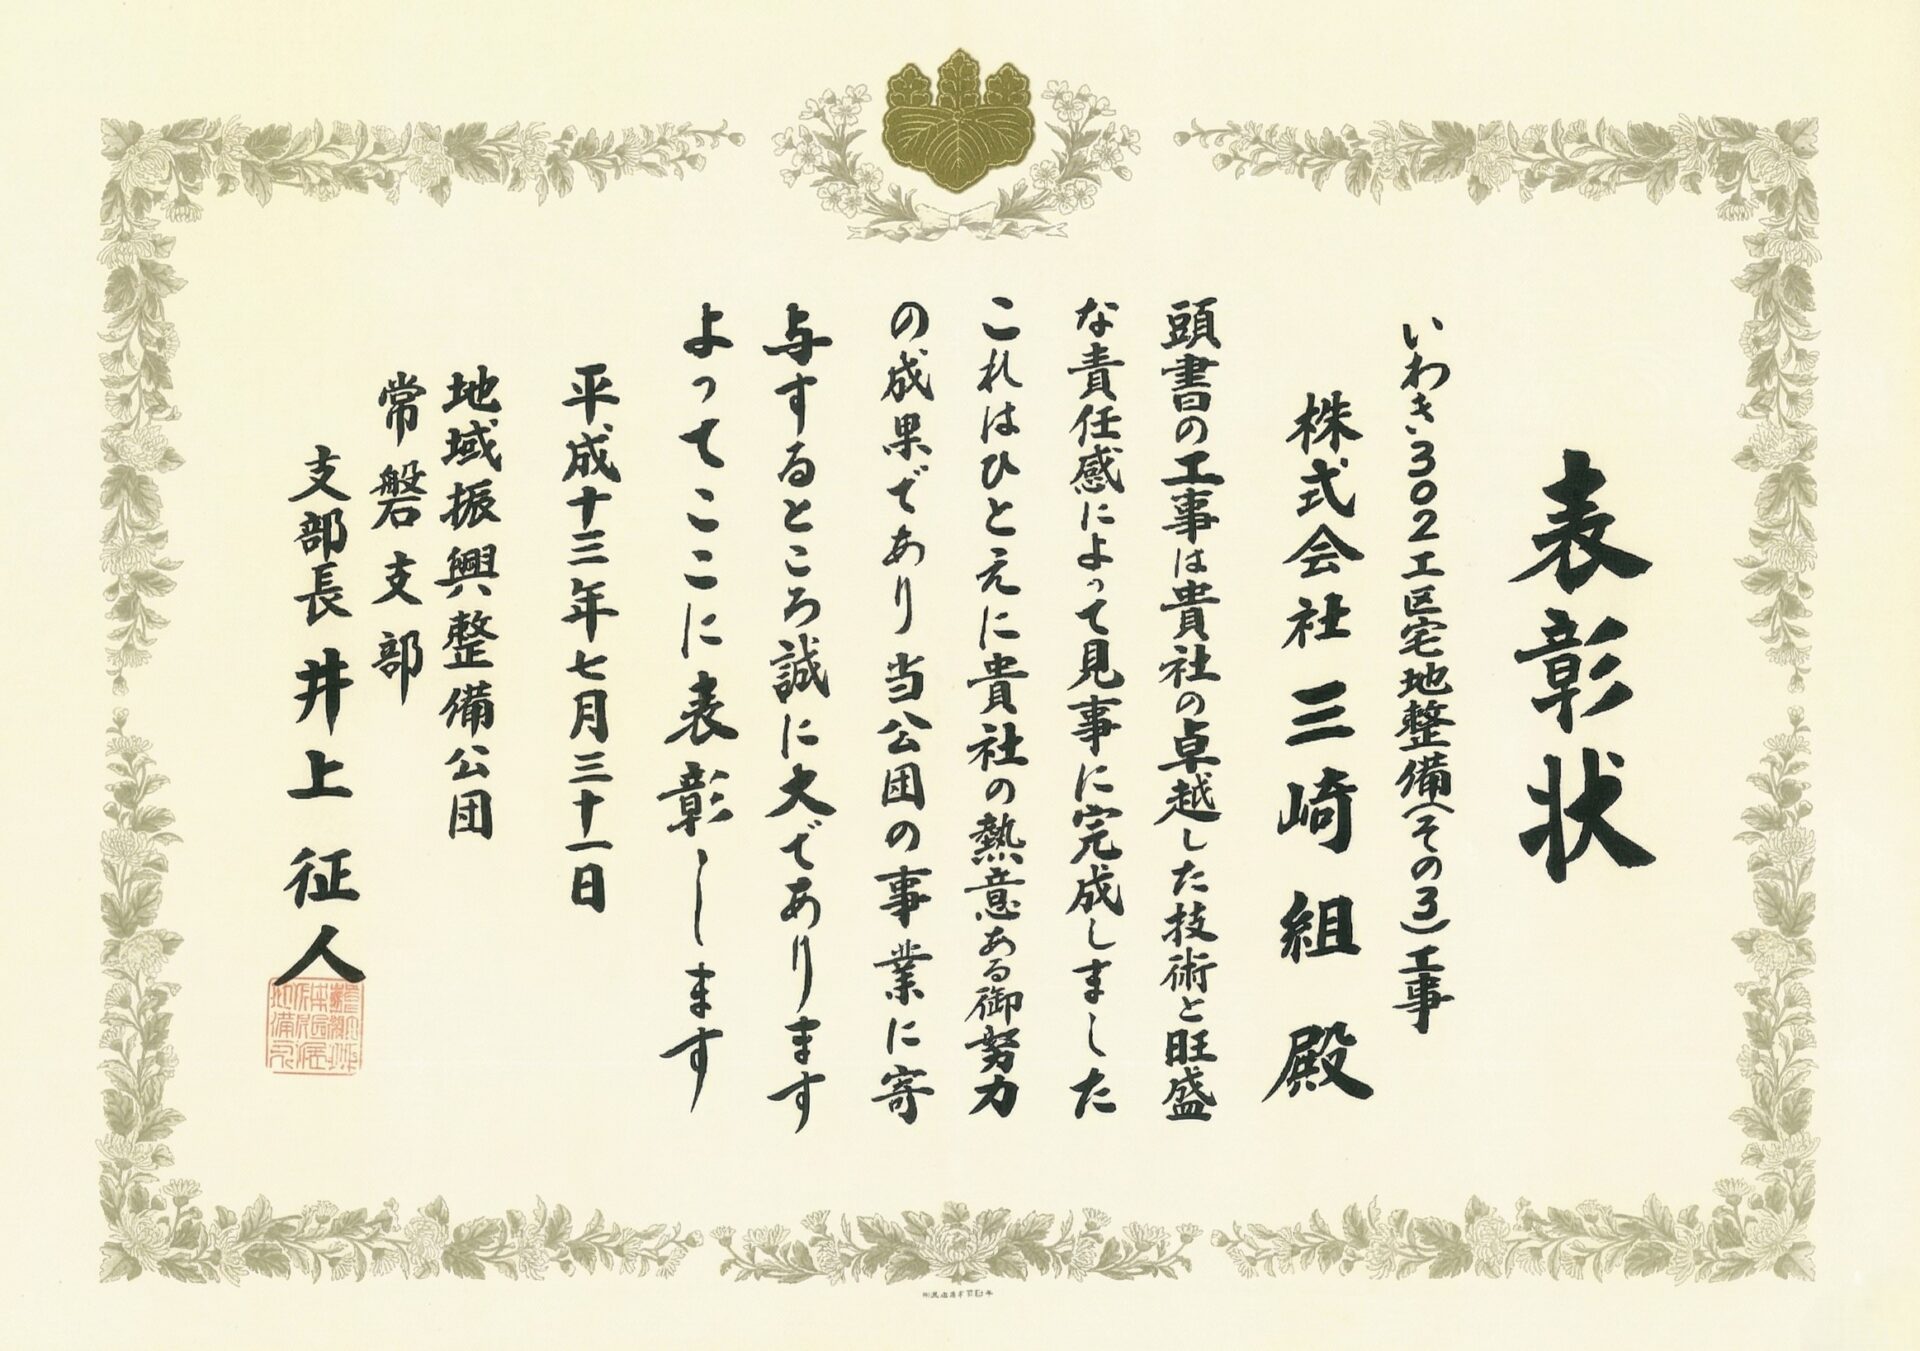 表彰状
いわき302工区宅地整備(その3)工事
株式会社三崎組殿
頭書の工事は貴社の卓越した技術と旺盛
な責任感によって見事に完成しました
これはひとえに貴社の熱意ある御努力
の成果であり当公団の事業に寄
与するところ誠に大であります
よってここに表彰します
平成十三年七月三十一日
地域振興整備公団
常磐支部
支部長井上征人